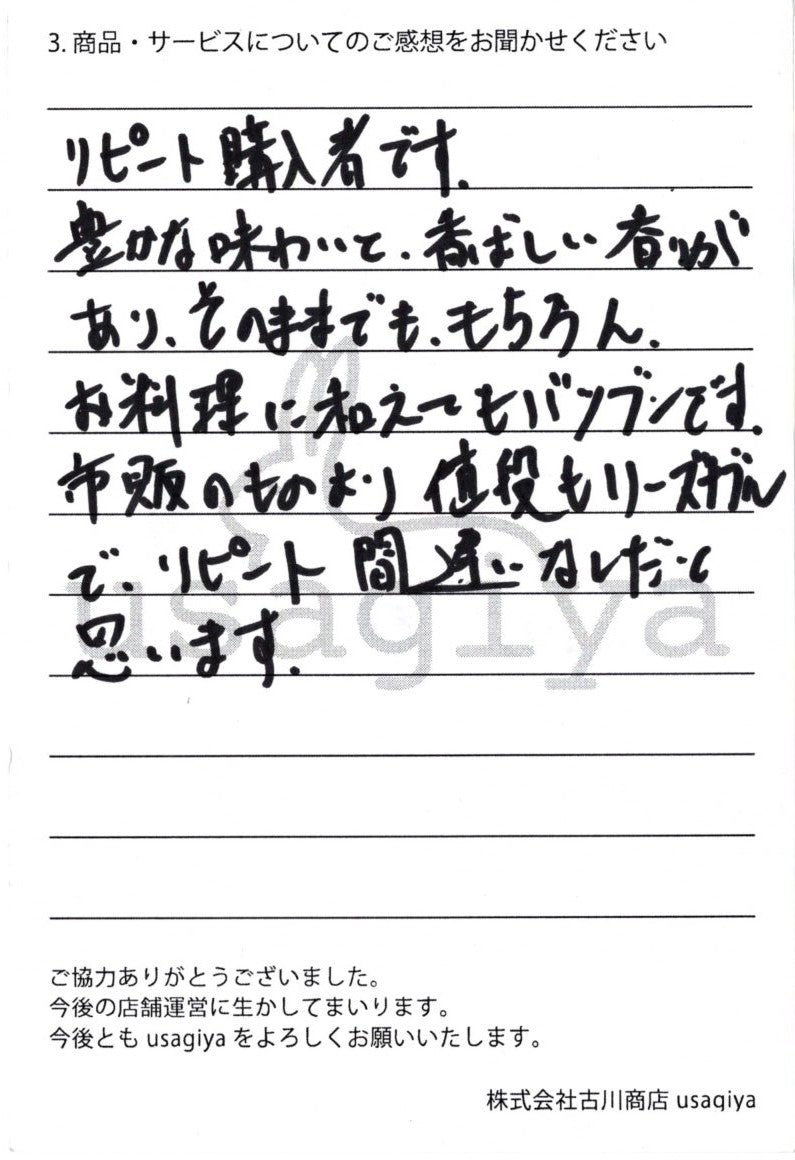 3. 商品・サービスについてのご感想をお聞かせください
リピート購入者です.
豊かな味わいと、香ばしい香りが
あり、そのままでも、もちろん、
お料理に和えてもバツグンです.
市販のものより値段もリーズナブル
で、リピート間違いなしだと
思います.
usagiya
ご協力ありがとうございました。
今後の店舗運営に生かしてまいります。
今後とも usagiya をよろしくお願いいたします。
株式会社古川商店 usagiya